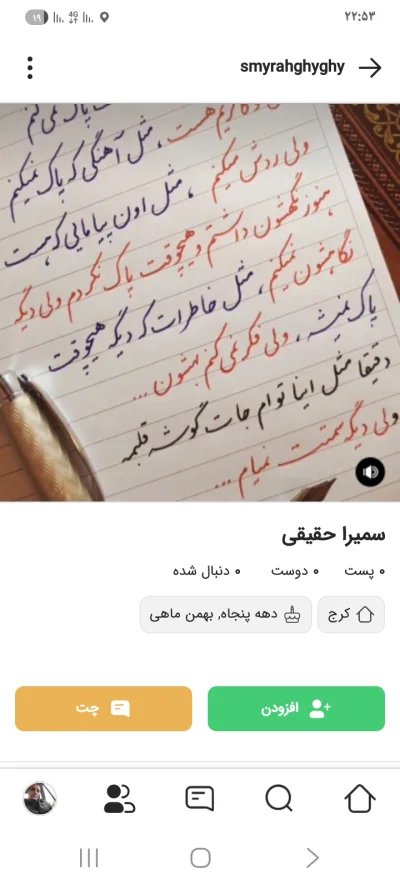 ۲۲:۵۳
4G
۱۹
smyrahghyghy
پاک نمی‌کنم
هست، مثل آهنگی که پاک نمیکنم
ولی ردش میکنم، مثل اون پیامایی که هست
هنوز نگهشون داشتم و هیچوقت پاک نکردم ولی دیگه
نگاهشون نمیکنم، مثل خاطرات که دیگه هیچوقت
پاک نمیشه، ولی فکر نمی کنم بهشون...
دقیقا مثل اینا توام جات گوشه قلبمه
ولی دیگه سمتت نمیام...
سمیرا حقیقی
۰ پست ۰ دوست ۰ دنبال شده
کرج
دهه پنجاه, بهمن ماهی
افزودن
چت